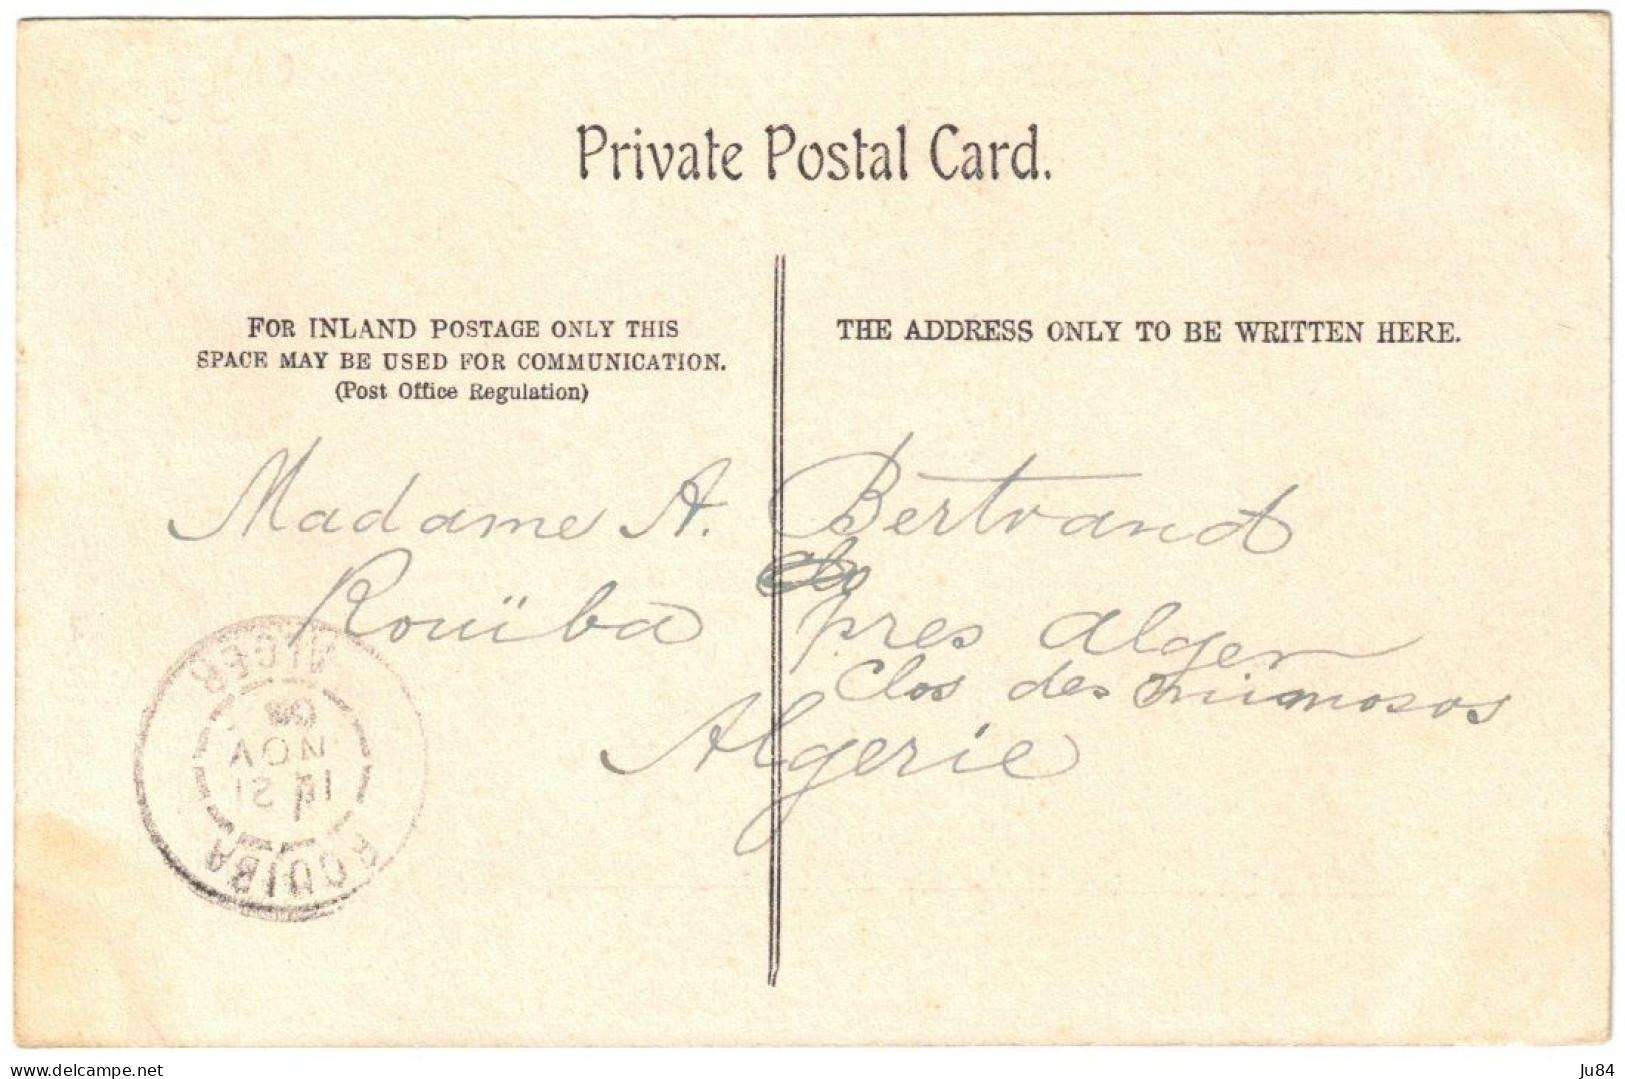 Private Postal Card.
FOR INLAND POSTAGE ONLY THIS
SPACE MAY BE USED FOR COMMUNICATION.
(Post Office Regulation)
THE ADDRESS ONLY TO BE WRITTEN HERE.
Madame A. Bertrand
Rouïba près Alger
Clos des mimosas
Algérie
ROUIBA
12 NOV 08
ALGER
delcampe.net
Ju84